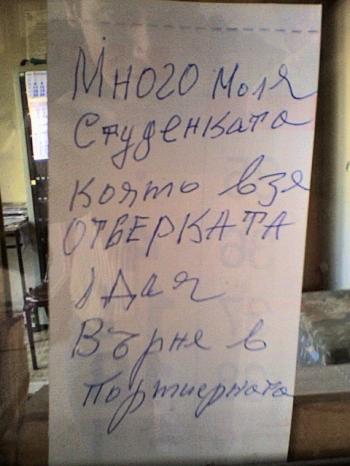 Много моля
Студенката
която взе
ОТВЕРКАТА
да я
Върне в
портиерната